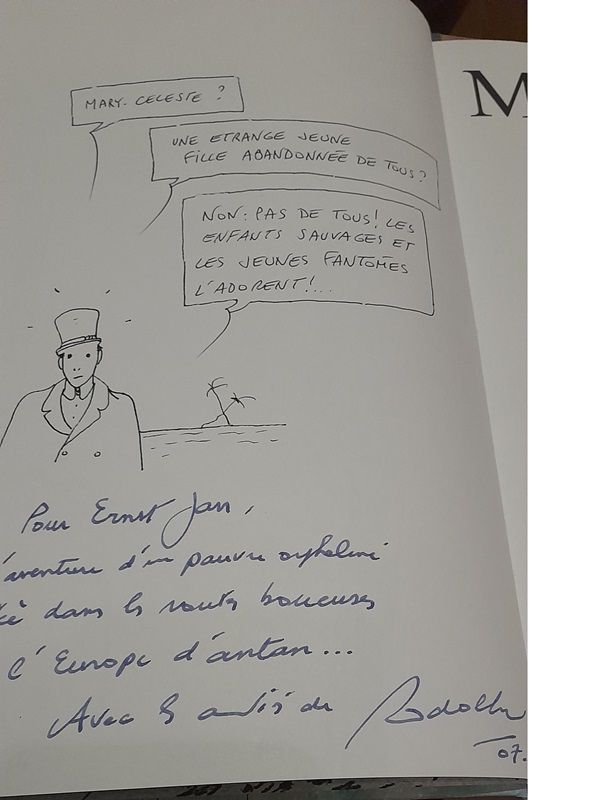 MARY-CELESTE ?
UNE ETRANGE JEUNE
FILLE ABANDONNÉE DE TOUS ?
NON : PAS DE TOUS ! LES
ENFANTS SAUVAGES ET
LES JEUNES FANTÔMES
L'ADORENT !...
M
Pour Ernst Jan,
'aventure d'un pauvre orphelin
dans les routes boueuses
l'Europe d'antan...
Avec de Rodolphe
07.